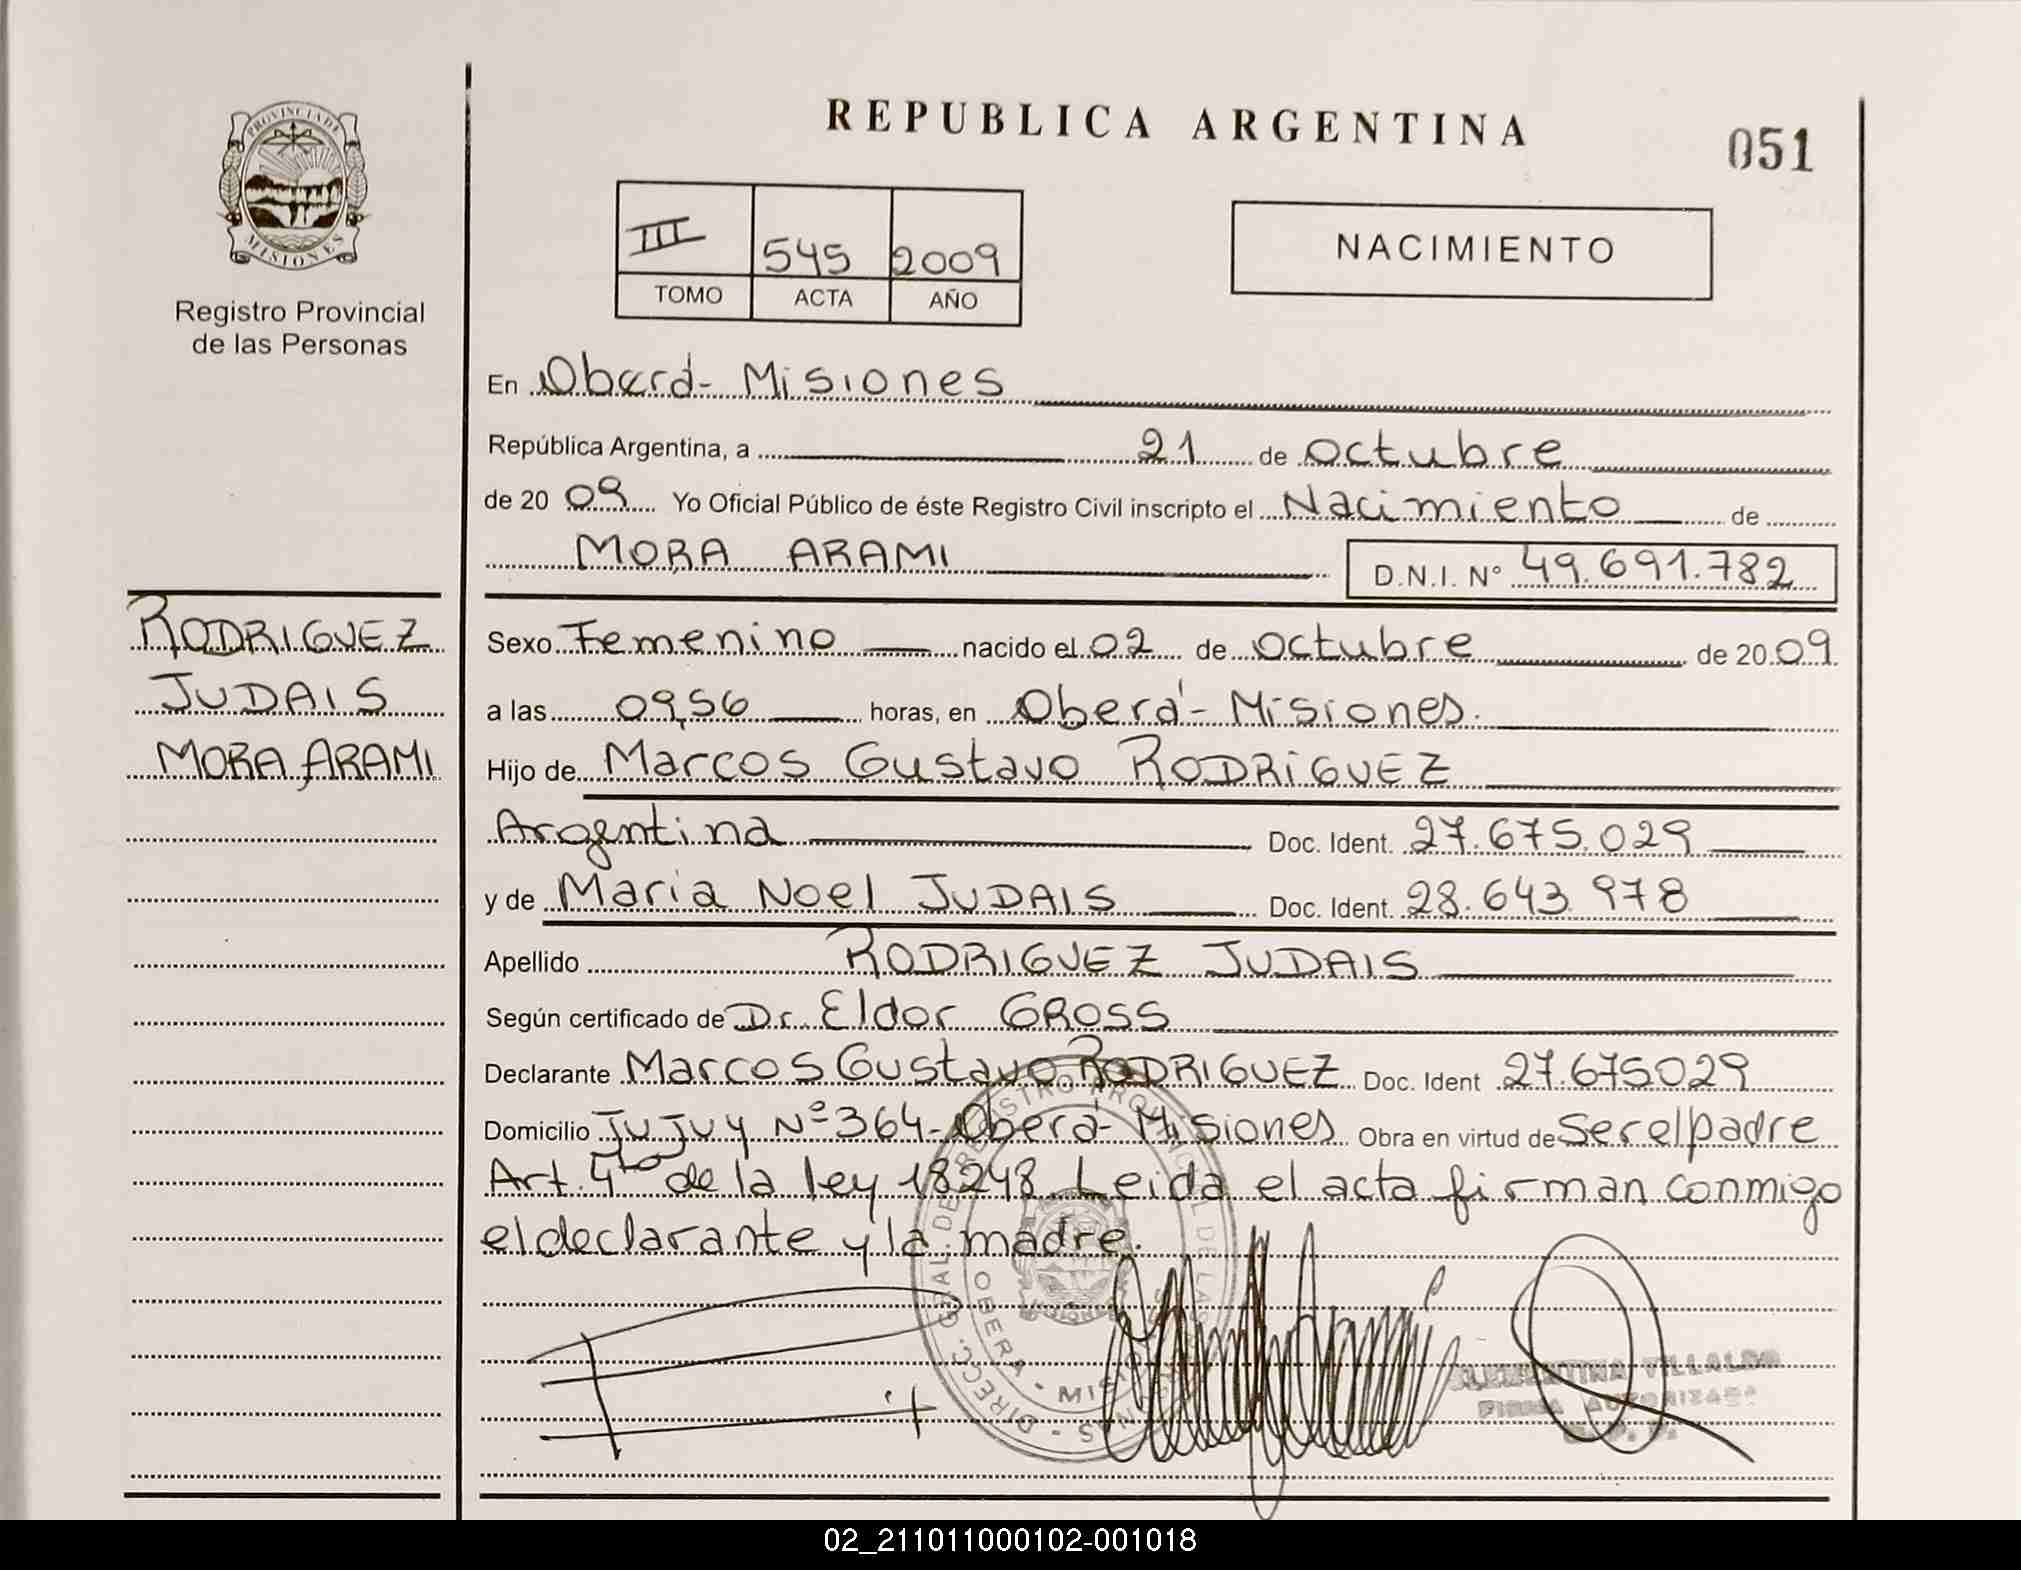 PROVINCIA DE
MISIONES
Registro Provincial
de las Personas
REPUBLICA ARGENTINA
051
III 545 2009
TOMO ACTA AÑO
NACIMIENTO
En Oberá - Misiones
República Argentina, a 21 de octubre
de 20 09 Yo Oficial Público de éste Registro Civil inscripto el Nacimiento de
MORA ARAMI D.N.I. Nº 49.691.782
RODRIGUEZ
JUDAIS
MORA ARAMI
Sexo Femenino nacido el 02 de octubre de 20 09
a las 09,56 horas, en Oberá - Misiones.
Hijo de Marcos Gustavo RODRIGUEZ
Argentina Doc. Ident. 27.675.029
y de Maria Noel JUDAIS Doc. Ident. 28.643.978
Apellido RODRIGUEZ JUDAIS
Según certificado de Dr. Eldor GROSS
Declarante Marcos Gustavo RODRIGUEZ Doc. Ident 27.675029
Domicilio Jujuy Nº 364 - Oberá - Misiones Obra en virtud de Ser el padre
Art. 4to de la ley 18248. Leida el acta firman conmigo
el declarante y la madre.
DIRECC. GRAL DE REGISTRO PROVINCIAL DE LAS PERSONAS
OBERA - MISIONES
VILLALBA
FIRMA AUTORIZADA
02_211011000102-001018